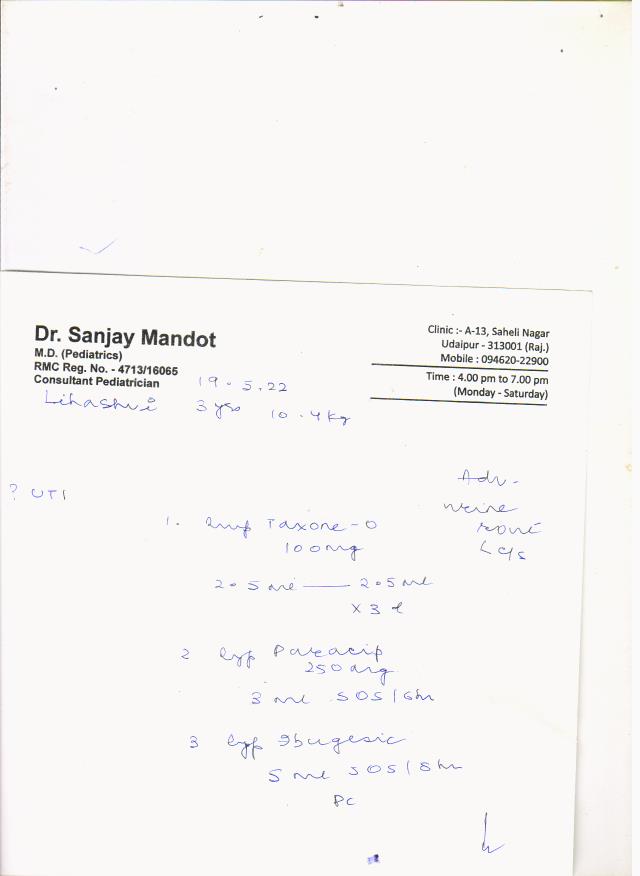 Dr. Sanjay Mandot
M.D. (Pediatrics)
RMC Reg. No. - 4713/16065
Consultant Pediatrician
Clinic :- A-13, Saheli Nagar
Udaipur - 313001 (Raj.)
Mobile : 094620-22900
Time : 4.00 pm to 7.00 pm
(Monday - Saturday)
19.5.22
3 yrs 10.4kg
Adv-
urine
? UTI
1. Taxone-O
100mg
c/s
2.5 ml — 2.5 ml
x 3 d
2 Syp Paracip
250 mg
3 ml SOS/6hr
3 Syp Ibugesic
5 ml SOS/8hr
PC